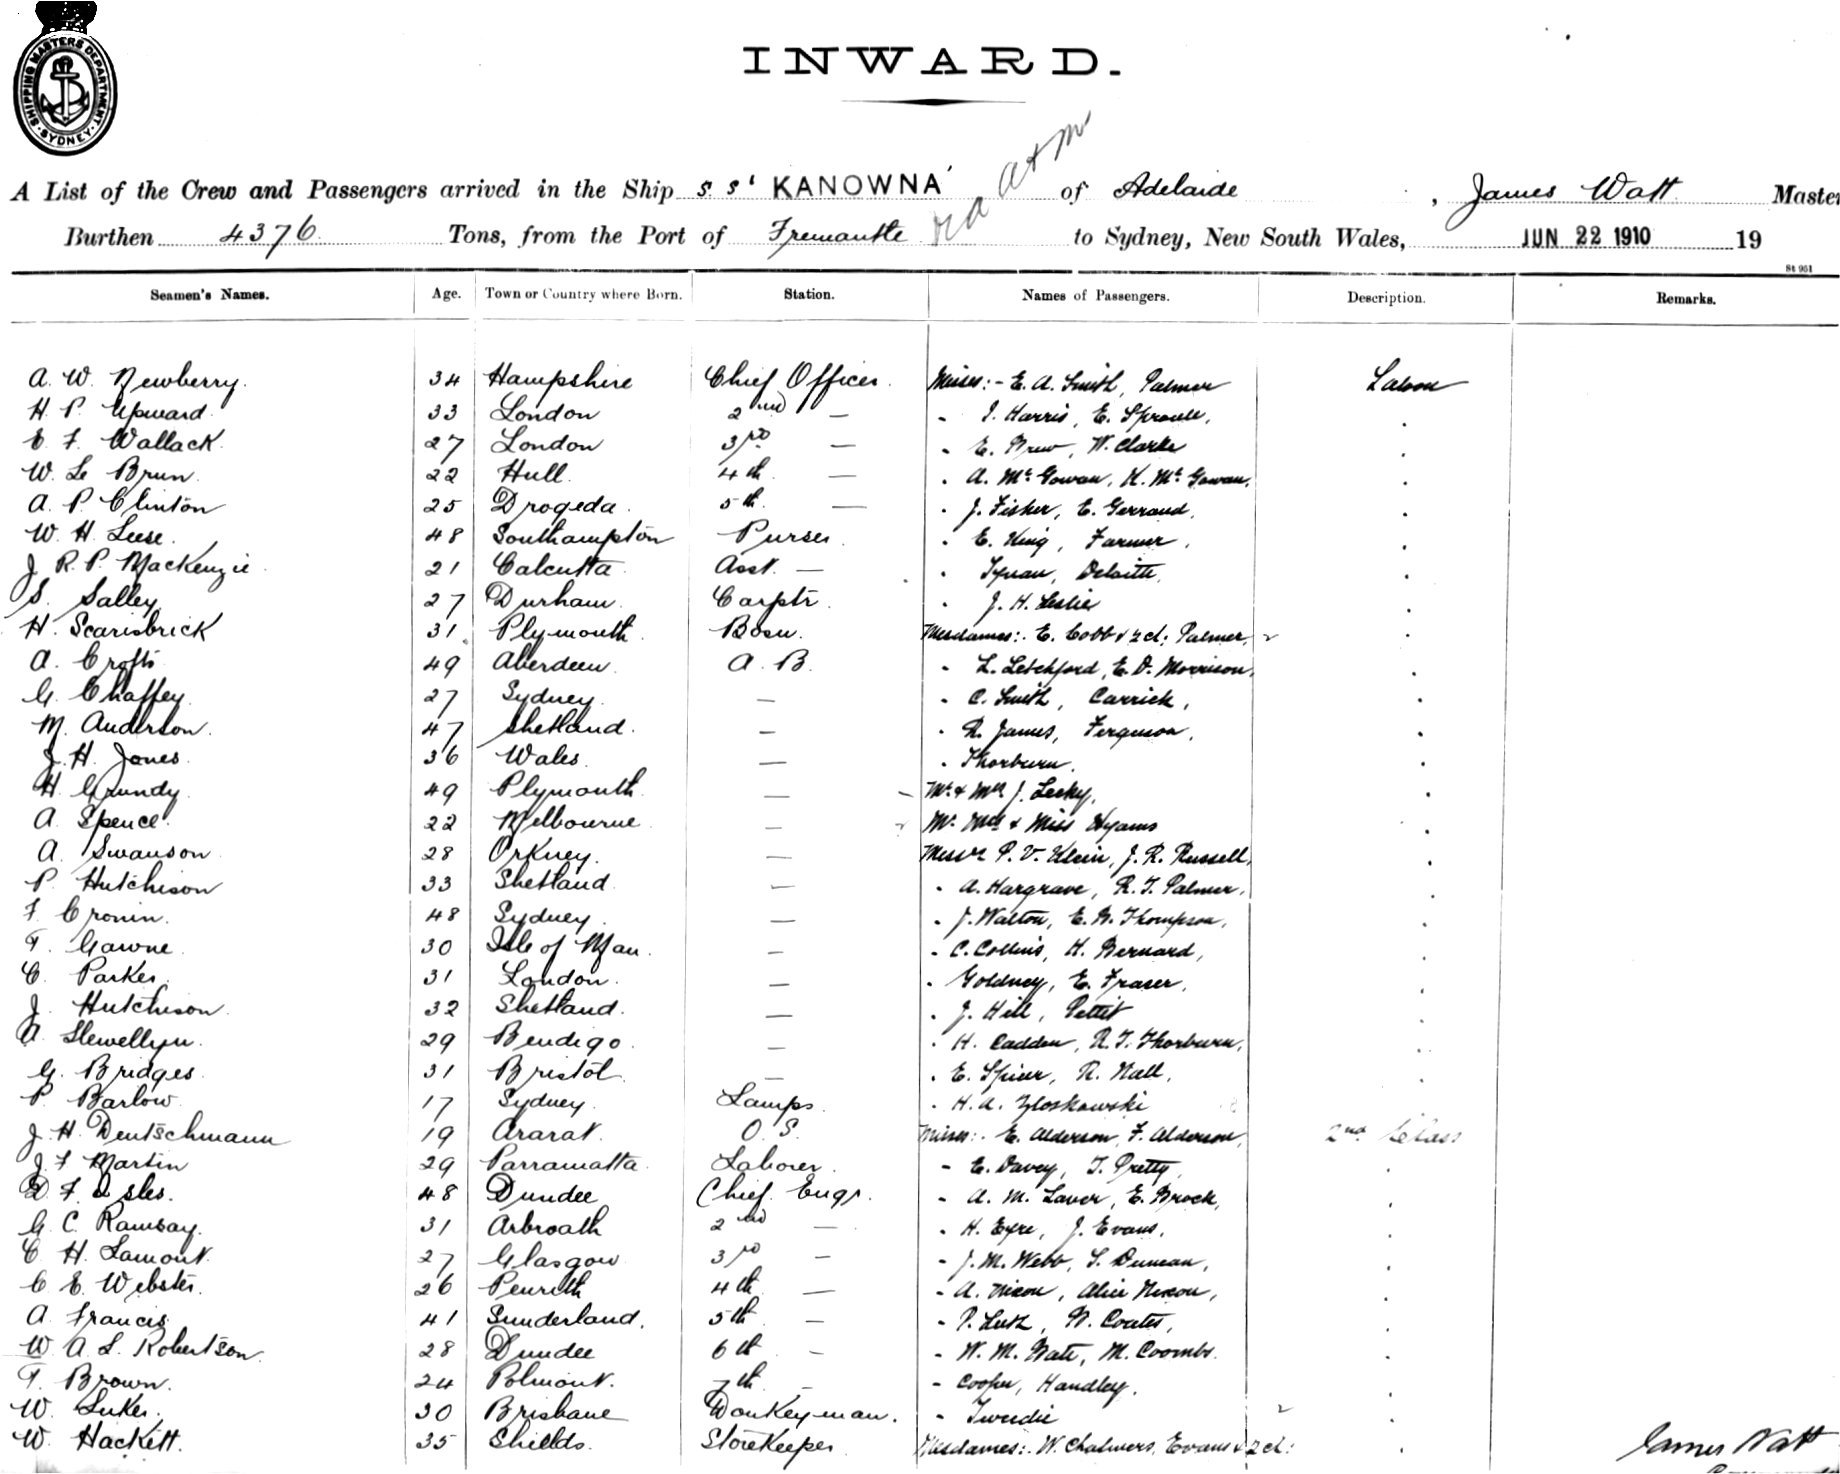 SHIPPING MASTERS DEPARTMENT · SYDNEY ·
INWARD.
A List of the Crew and Passengers arrived in the Ship s.s. 'KANOWNA' of Adelaide, James Watt Master
Burthen 4376 Tons, from the Port of Fremantle to Sydney, New South Wales, JUN 22 1910 19
St 951
Seamen's Names. Age. Town or Country where Born. Station. Names of Passengers. Description. Remarks.
A. W. Newberry. 34 Hampshire Chief Officer. Misses:- E. A. Smith, Palmer Saloon
H. P. Upward. 33 London 2nd — " I. Harris, E. Sproule,
E. F. Wallack. 27 London 3rd — " E. Grew, W. Clarke
W. Le Brun. 22 Hull. 4th — " A. McGowan, K. McGowan,
A. P. Clinton 25 Drogeda. 5th — " J. Fisher, E. Gerrand,
W. H. Leese. 48 Southampton Purser " E. King, Farmer,
J. R. P. MacKenzie 21 Calcutta Asst. — " Deloitte,
S. Salley 27 Durham. Carptr. " J. H. Leslie
H. Scarisbrick 31 Plymouth Bosn. Mesdames:- E. Cobb & 2 ch; Palmer,
A. Crofts 49 Aberdeen. A. B. " L. Letchford, E. D. Morrison,
G. Chaffey 27 Sydney. — " C. Smith, Carrick,
M. Anderson. 47 Shetland. — " R. James, Ferguson,
J. H. Jones. 36 Wales. — " Thorburn.
H. Grundy. 49 Plymouth. — Mr. & Mrs J. Lecky,
A. Spence. 22 Melbourne — Mr. Mrs & Miss Hyams
A. Swanson 28 Orkney. — Messrs P. V. Klein, J. R. Russell,
P. Hutchison 33 Shetland. — " A. Hargrave, R. T. Palmer,
F. Cronin. 48 Sydney. — " J. Walton, E. W. Thompson,
T. Gawne 30 Isle of Man. — " C. Collins, H. Bernard,
C. Parker. 31 London. — " Goldney, E. Fraser,
J. Hutchison. 32 Shetland. — " J. Hill, Pettit
A. Llewellyn. 29 Bendigo. — " H. Caddon, R. T. Thorburn,
G. Bridges. 31 Bristol. — " E. Spicer, R. Hall,
P. Barlow. 17 Sydney. Lamps. " H. A. Zloskowski
J. H. Deutschmann 19 Ararat. O. S. Misses:- E. Alderson, F. Alderson, 2nd Class
J. F. Martin 29 Parramatta. Laborer. " E. Davey, T. Pretty,
D. F. Isles. 48 Dundee Chief Engr. " A. M. Laver, E. Brock,
G. C. Ramsay. 31 Arbroath 2nd — " H. Eyre, J. Evans,
C. H. Lamont. 27 Glasgow 3rd — " J. M. Webb, S. Duncan,
C. E. Webster. 26 Penrith 4th — " A. Nixon, Alice Nixon,
A. Francis 41 Sunderland. 5th — " P. Lutz, W. Coates,
W. A. L. Robertson. 28 Dundee 6th — " W. M. Coombs.
T. Brown. 24 Polmont. 7th — " Cooper, Handley.
W. Luker. 30 Brisbane Donkeyman. " Tweedie
W. Hackett. 35 Shields. Storekeeper Mesdames:. W. Chalmers, Evans & 2 ch:
James Watt